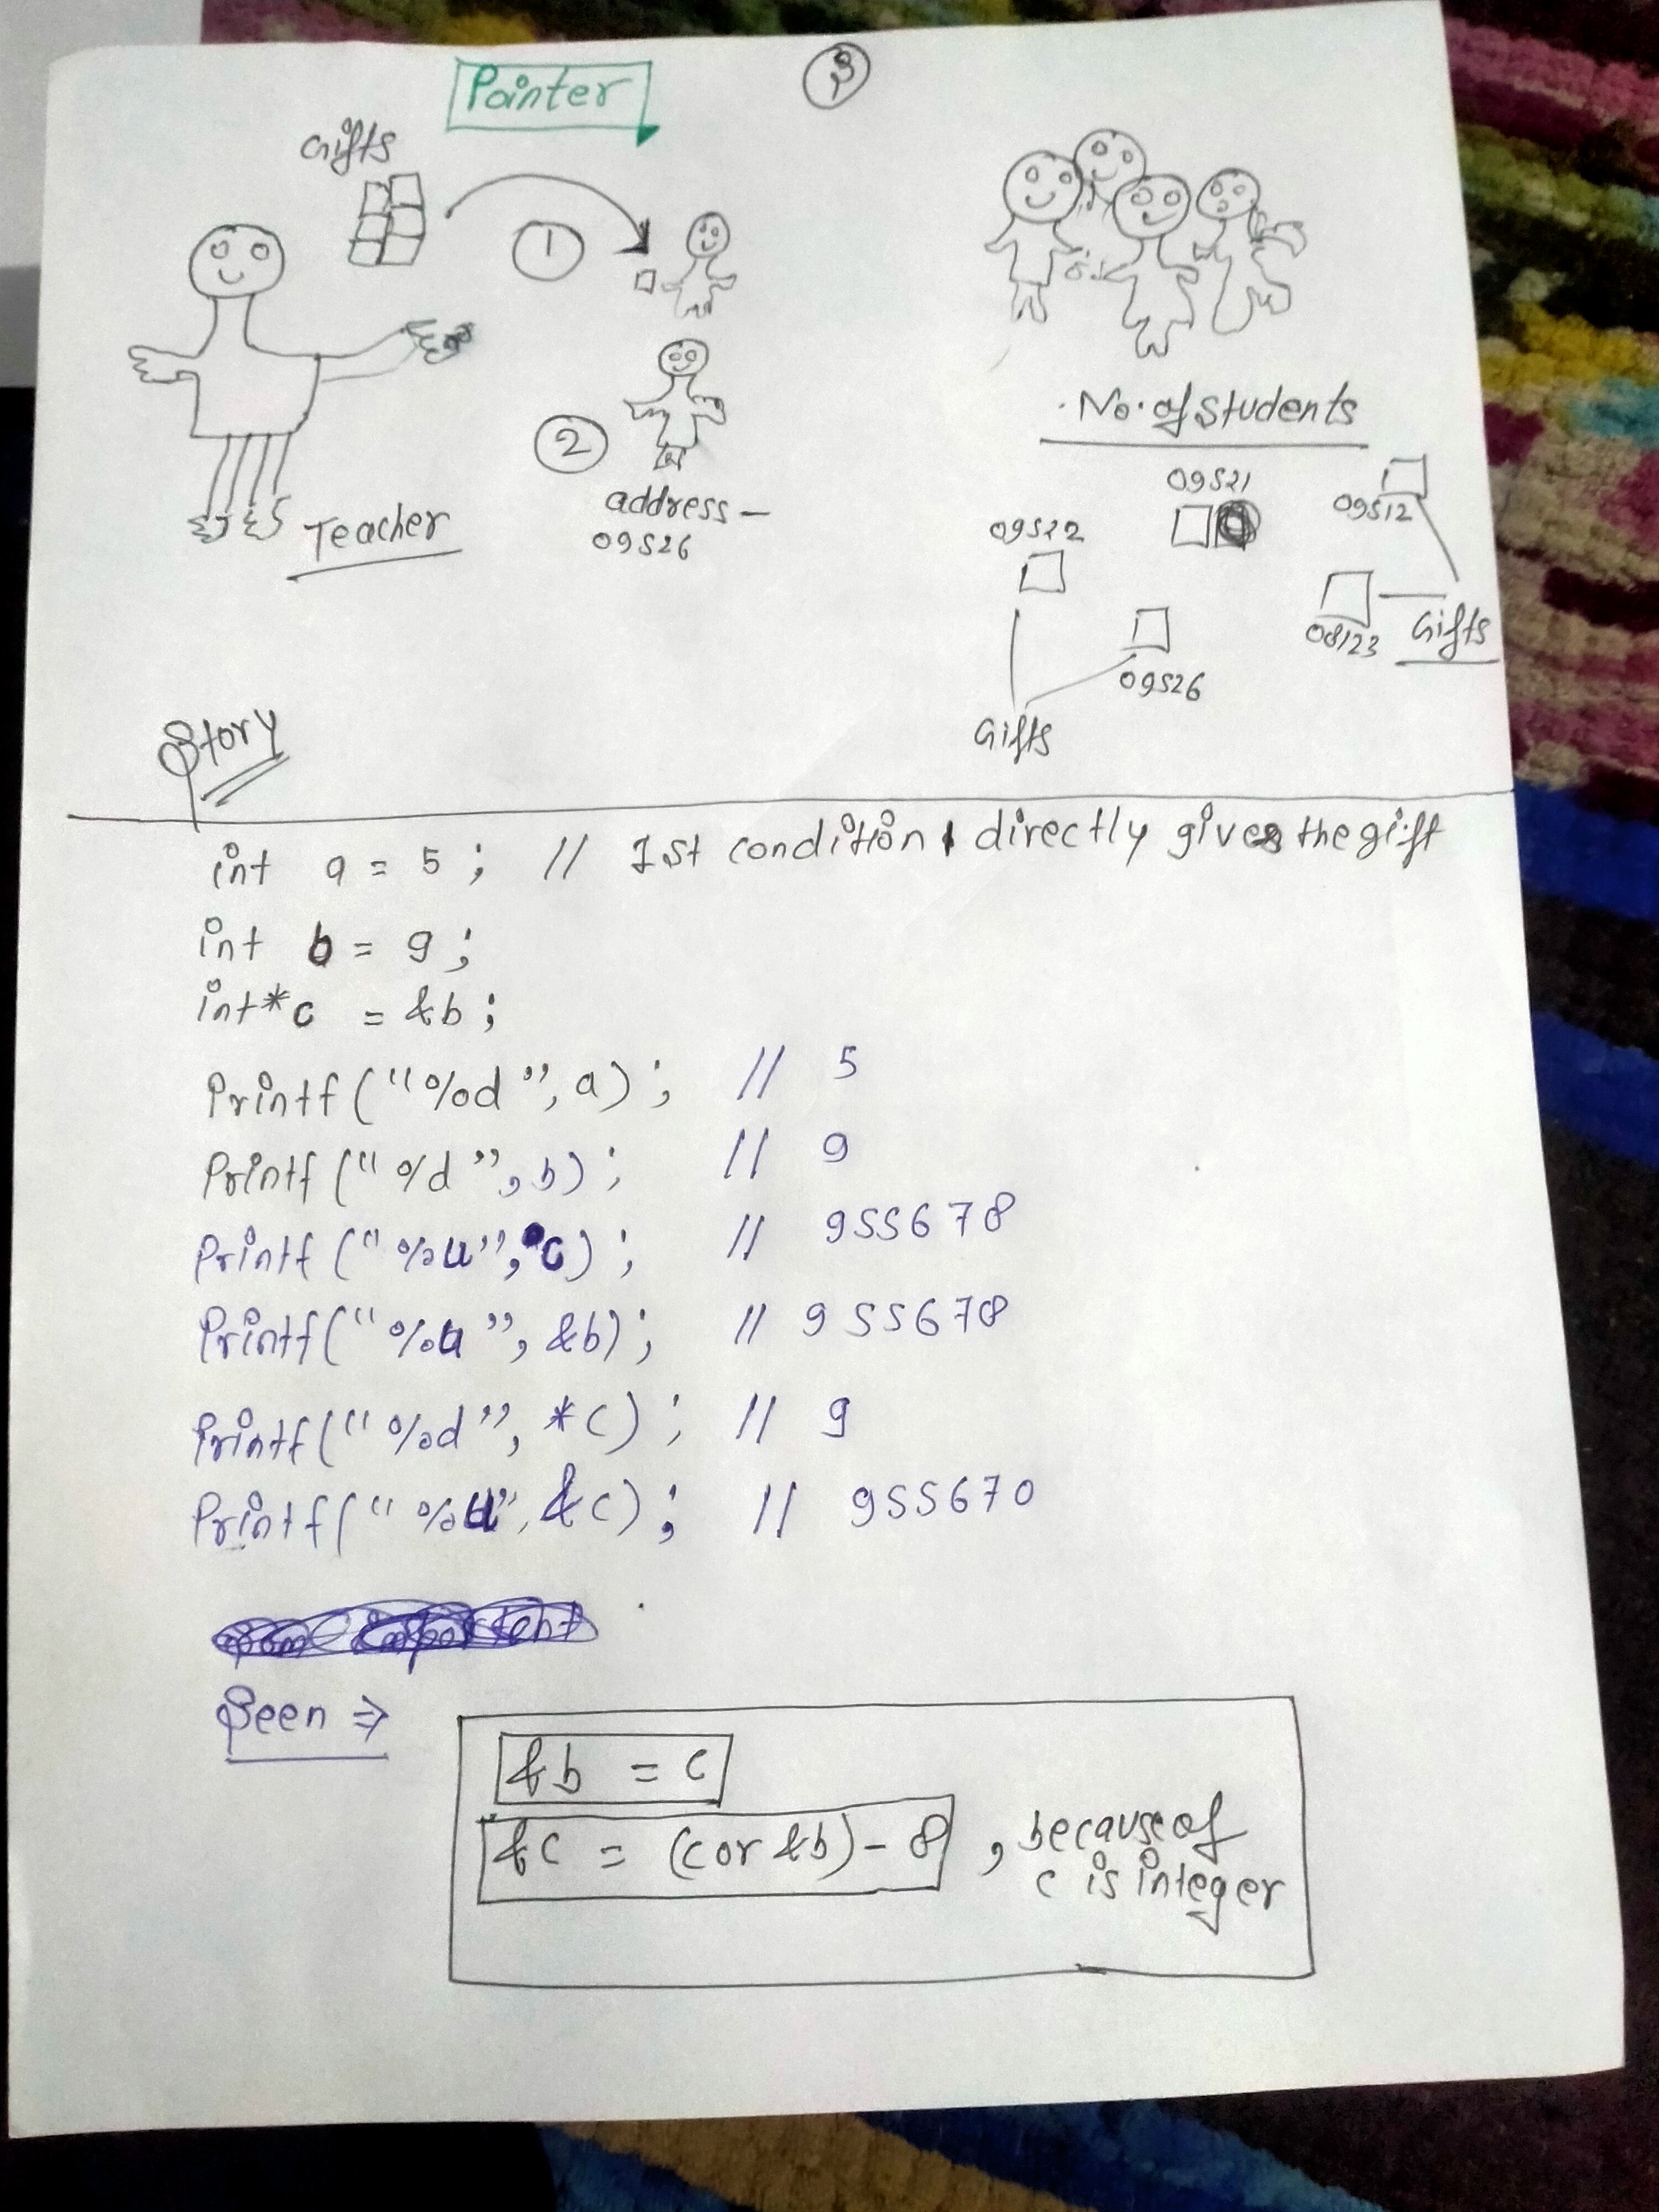 Pointer
3
Gifts
1
2
address -
09526
Teacher
No. of Students
09521
09522
09512
08123
Gifts
09526
Gifts
Story
int a = 5 ; // 1st condition directly gives the gift
int b = 9 ;
int*c = &b ;
Printf ("%d", a) ; // 5
Printf ("%d", b) ; // 9
Printf ("%u", c) ; // 955678
Printf ("%u", &b) ; // 955678
Printf ("%d", *c) ; // 9
Printf ("%u", &c) ; // 955670
Seen ⇒
&b = c
&c = (c or &b) - 8 , because of
c is integer